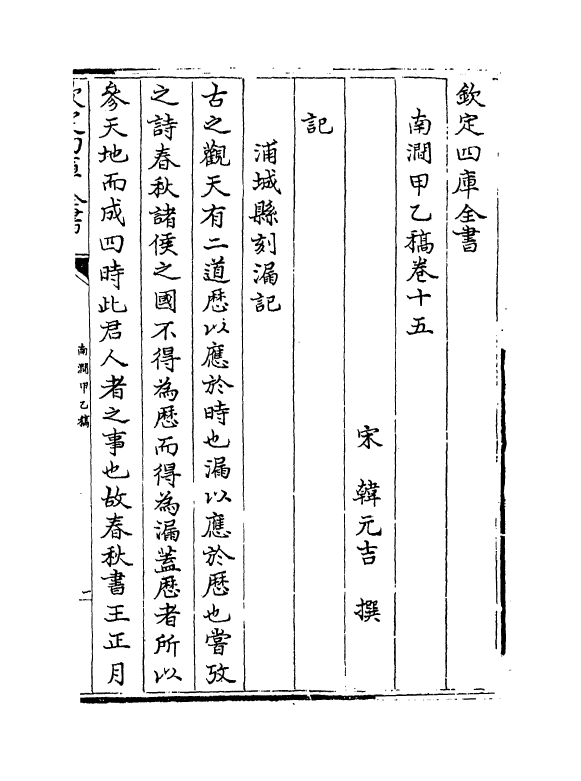 欽定四庫全書
南澗甲乙稿卷十五
宋 韓元吉 撰
記
浦城縣刻漏記
古之觀天有二道厯以應於時也漏以應於厯也嘗攷
之詩春秋諸侯之國不得為厯而得為漏蓋厯者所以
參天地而成四時此君人者之事也故春秋書王正月
南澗甲乙稿